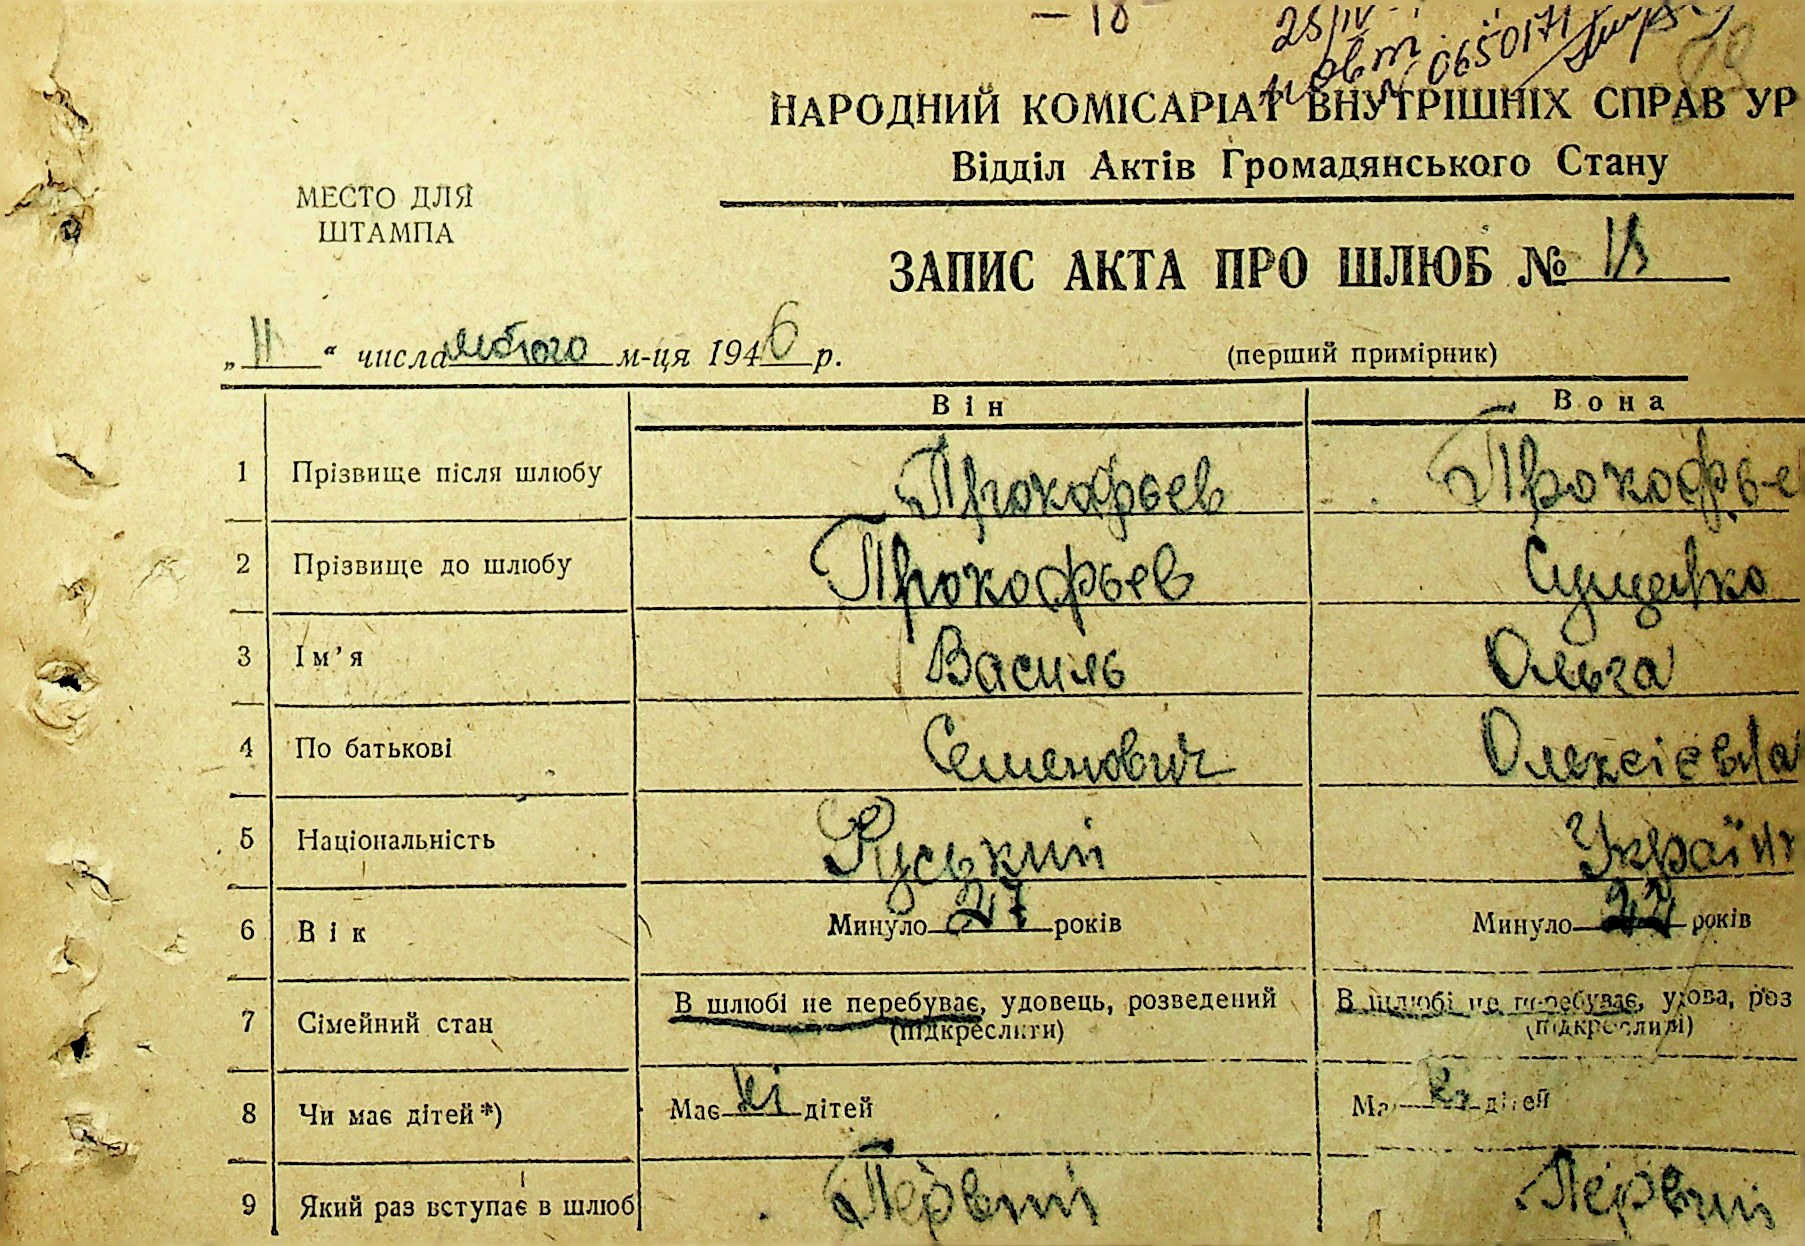 — 18 -
25/IV
№ 0650171
НАРОДНИЙ КОМІСАРІАТ ВНУТРІШНІХ СПРАВ УР
Відділ Актів Громадянського Стану
МЕСТО ДЛЯ
ШТАМПА
ЗАПИС АКТА ПРО ШЛЮБ № 18
„ 11 “ числа лютого м-ця 1946 р. (перший примірник)
Він Вона
1 Прізвище після шлюбу Прокофьев Прокофье
2 Прізвище до шлюбу Прокофьев
3 Ім'я Василь Ольга
4 По батькові Семенович Олексієвна
5 Національність Руський Україн
6 Вік Минуло 27 років Минуло 22 років
7 Сімейний стан В шлюбі не перебуває, удовець, розведений В шлюбі не перебуває, удова, роз
(підкреслити) (підкреслити)
8 Чи має дітей*) Має ні дітей Ма ні дітей
9 Який раз вступає в шлюб Первий Первий